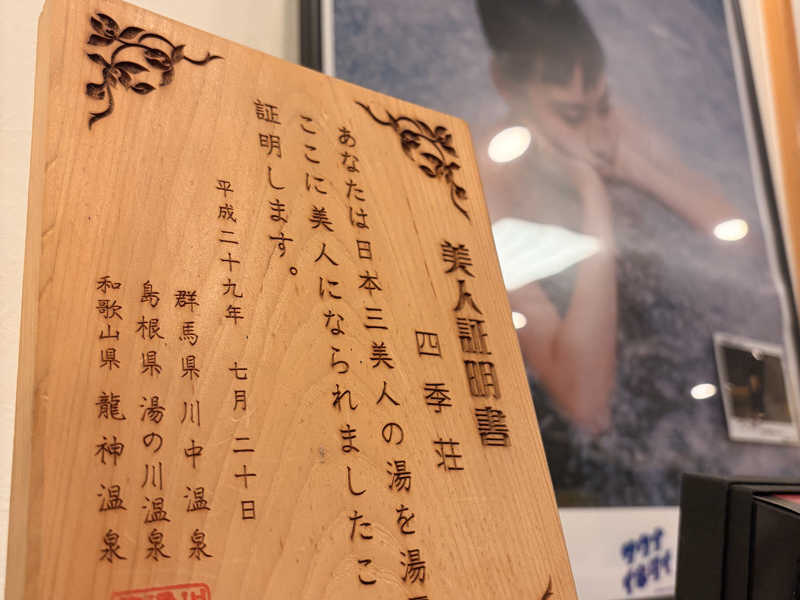 美人証明書
四季荘
あなたは日本三美人の湯を湯
ここに美人になられましたこ
証明します。
平成二十九年 七月二十日
群馬県川中温泉
島根県湯の川温泉
和歌山県龍神温泉